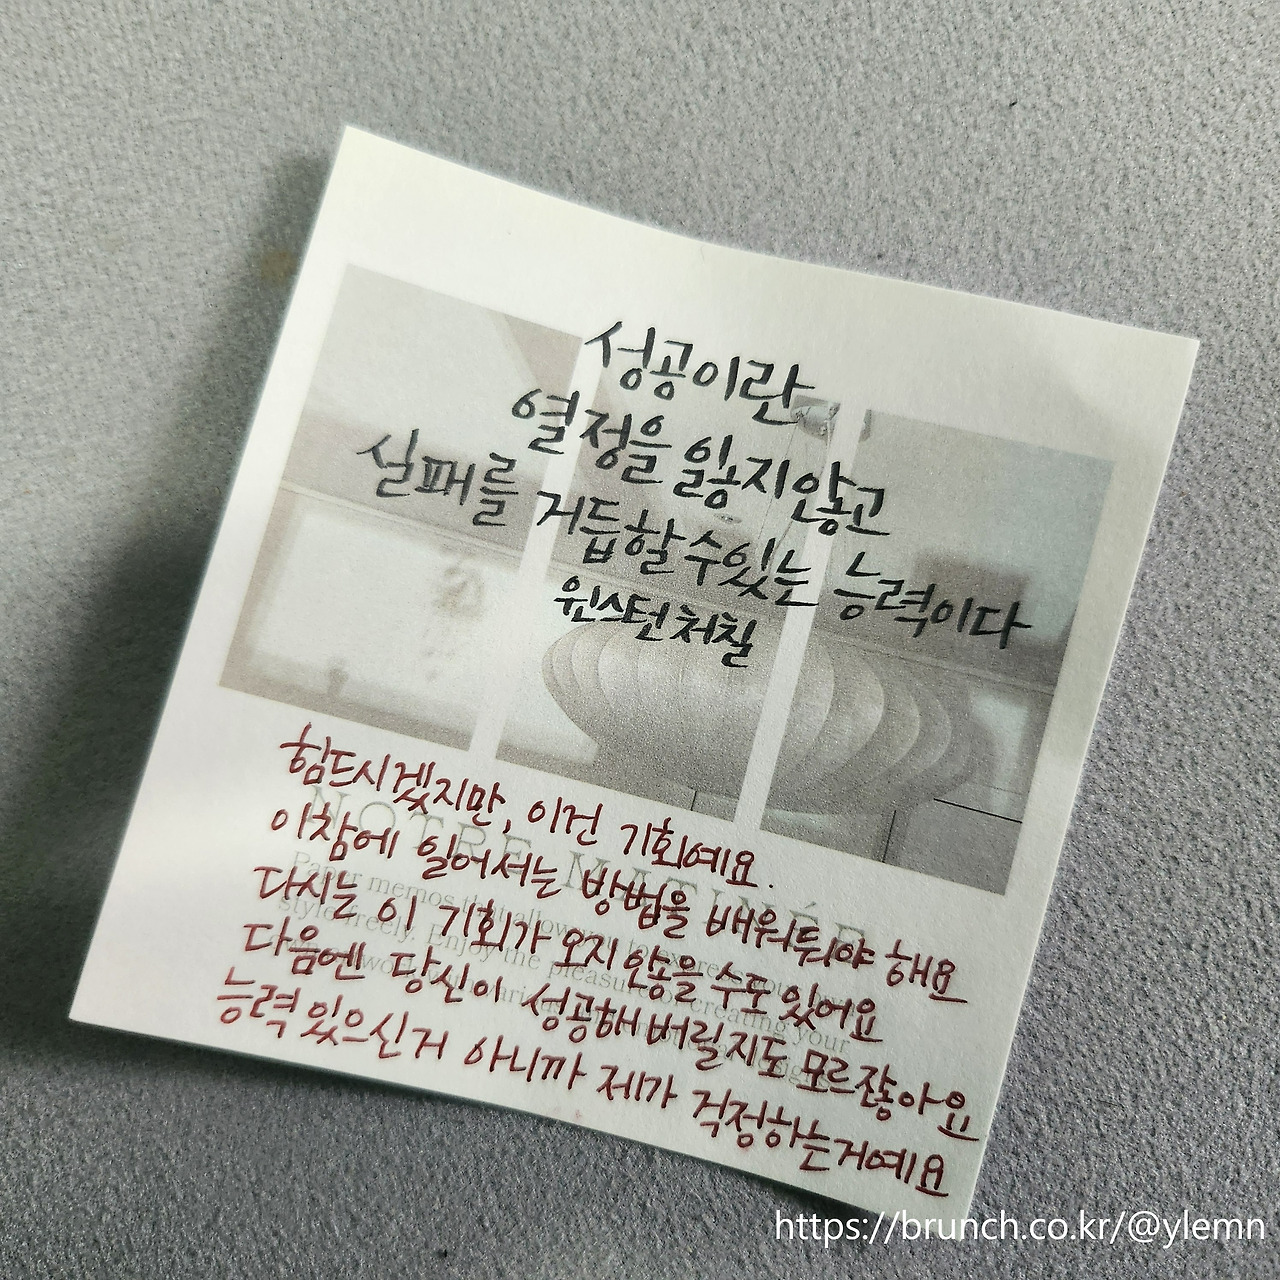 성공이란
열정을 잃지않고
실패를 거듭할 수 있는 능력이다
윈스턴 처칠
힘드시겠지만, 이건 기회예요.
이참에 일어서는 방법을 배워둬야 해요
다시는 이 기회가 오지 않을 수도 있어요
다음엔 당신이 성공해 버릴지도 모르잖아요
능력 있으신거 아니까 제가 걱정하는거예요
NOTRE MATINÉE
Paper memos that allow you to express your
style freely. Enjoy the pleasure of creating your
https://brunch.co.kr/@ylemn